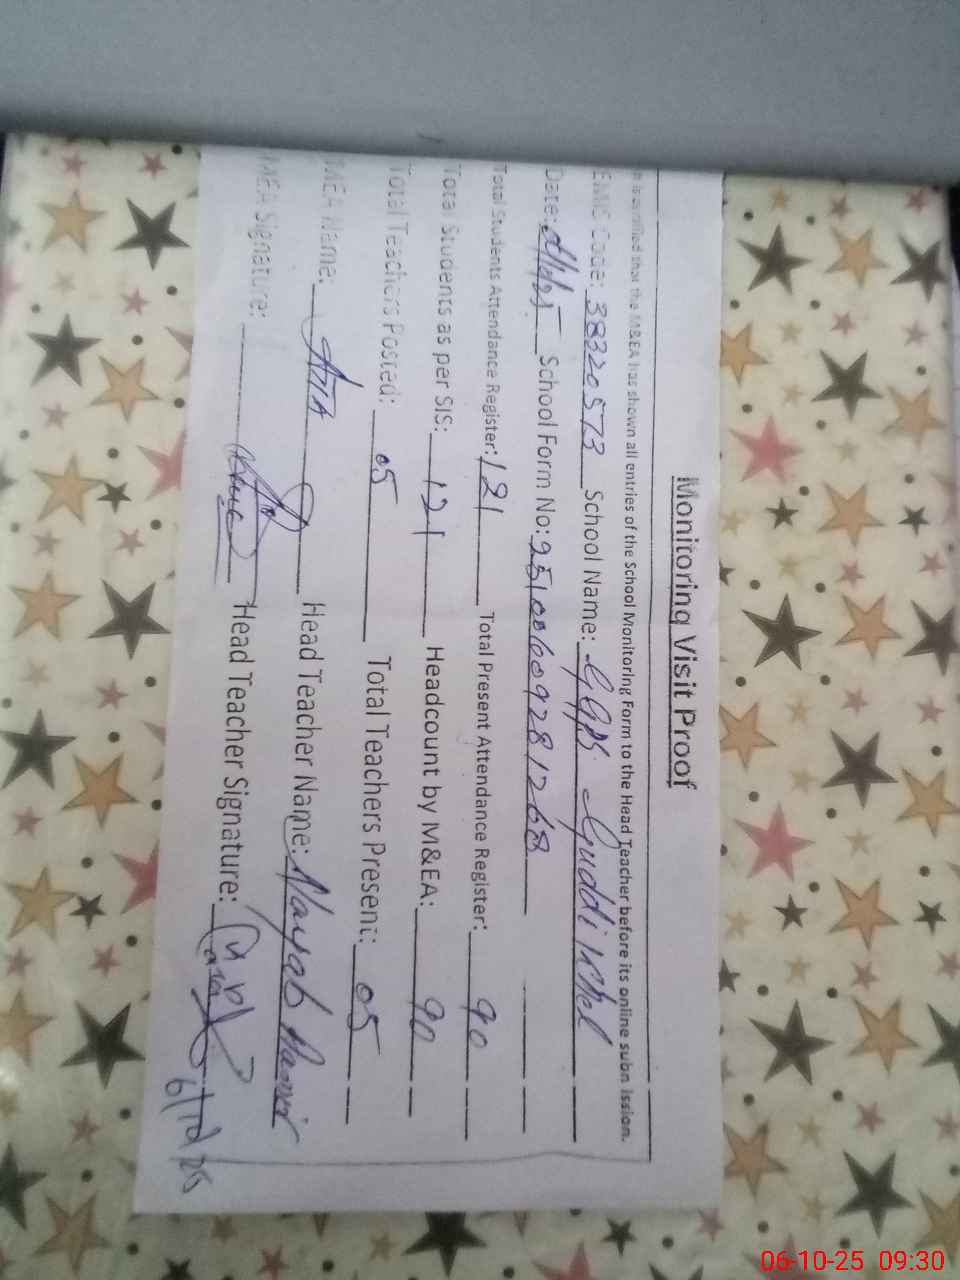 Monitoring Visit Proof
It is verified that the M&EA has shown all entries of the School Monitoring Form to the Head Teacher before its online submission.
EMIS Code: 38320573 School Name: GGPS Guddi Khel
Date: School Form No: 251006009281268
Total Students Attendance Register: 121 Total Present Attendance Register: 90
Total Students as per SIS: 121 Headcount by M&EA: 90
Total Teachers Posted: 05 Total Teachers Present: 05
MEA Name: Head Teacher Name: Nayab
MEA Signature: Head Teacher Signature:
6/10/25
06-10-25 09:30